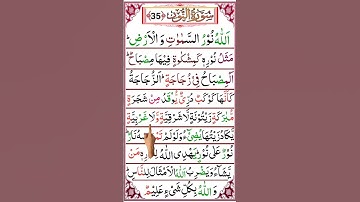 سُوْرَةُ النُّوْر ﴿35﴾
اَللّٰهُ نُوْرُ السَّمٰوٰتِ وَ الْاَرْضِ ؕ
مَثَلُ نُوْرِهٖ كَمِشْكٰوةٍ فِیْهَا مِصْبَاحٌ ؕ
اَلْمِصْبَاحُ فِیْ زُجَاجَةٍ ؕ اَلزُّجَاجَةُ
كَاَنَّهَا كَوْكَبٌ دُرِّیٌّ یُّوْقَدُ مِنْ شَجَرَةٍ
مُّبٰرَكَةٍ زَیْتُوْنَةٍ لَّا شَرْقِیَّةٍ وَّ لَا غَرْبِیَّةٍ ۙ
یَّكَادُ زَیْتُهَا یُضِیْٓءُ وَ لَوْ لَمْ نَارٌ ؕ
نُوْرٌ عَلٰی نُوْرٍ ؕ یَهْدِی اللّٰهُ مَنْ
یَّشَآءُ ؕ وَ یَضْرِبُ اللّٰهُ الْاَمْثَالَ لِلنَّاسِ ؕ
وَ اللّٰهُ بِكُلِّ شَیْءٍ عَلِیْمٌ